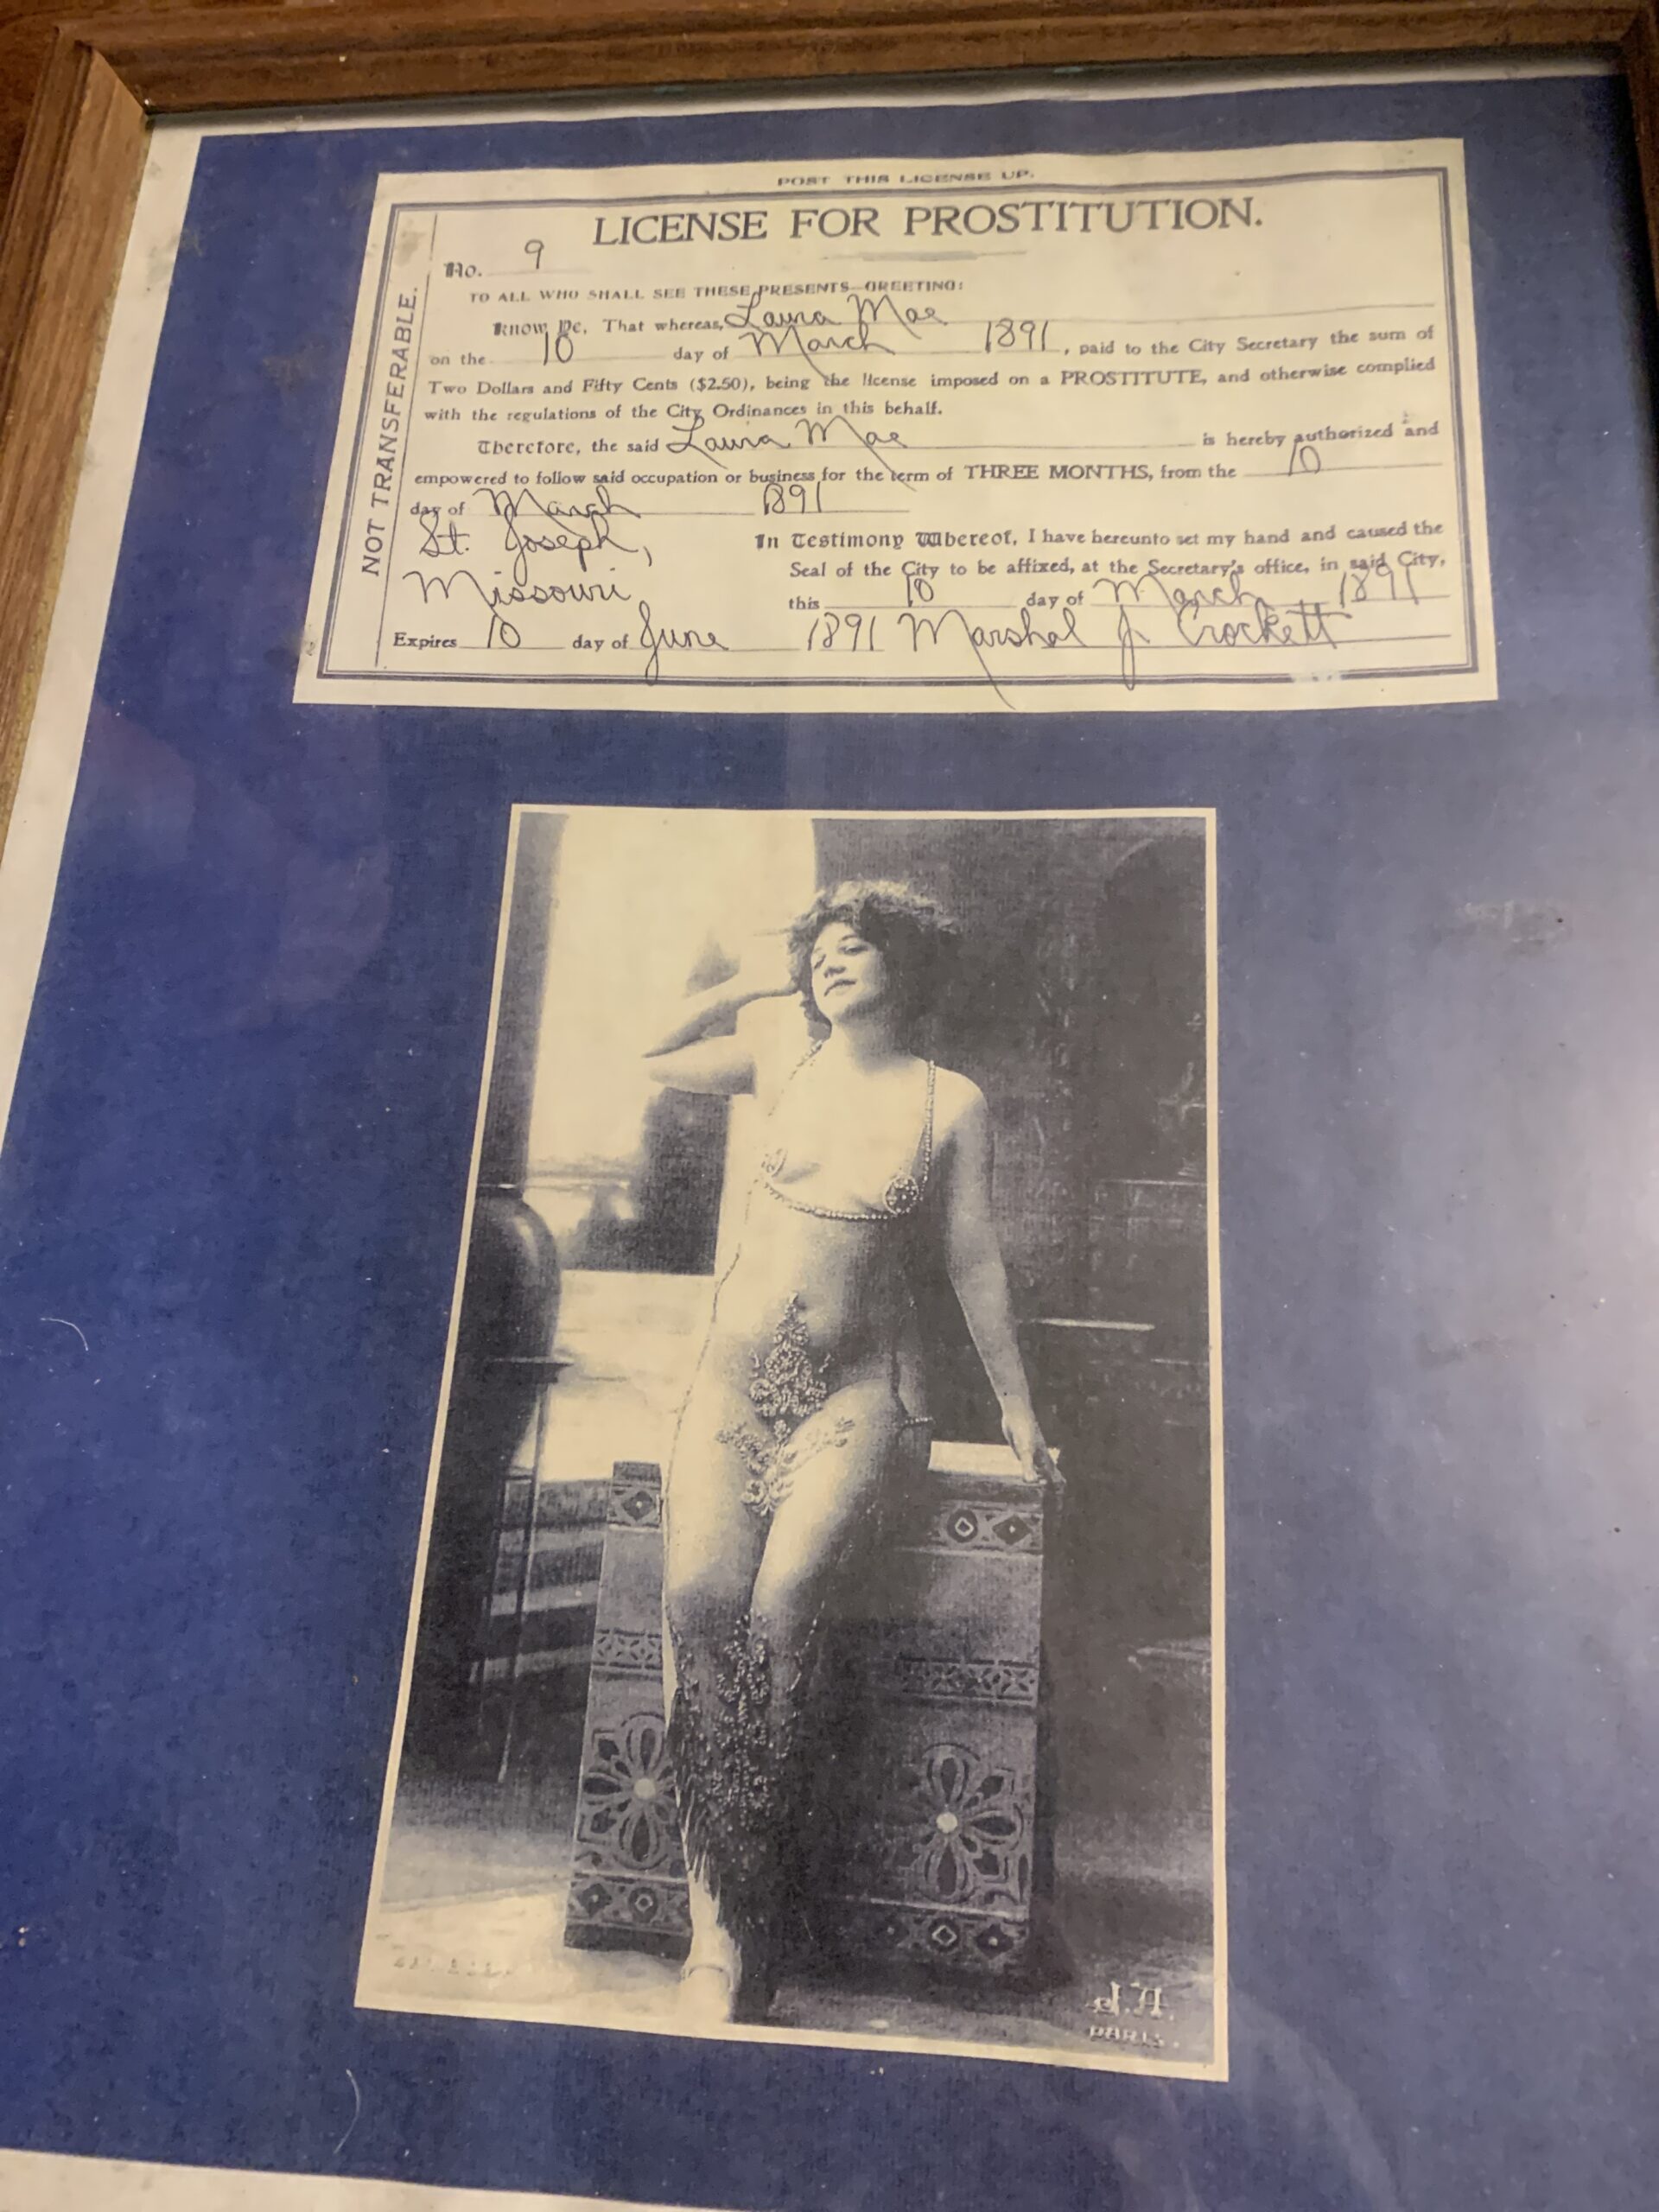 POST THIS LICENSE UP.
LICENSE FOR PROSTITUTION.
No. 9
TO ALL WHO SHALL SEE THESE PRESENTS—GREETING:
Know Ye, That whereas, Laura Mae
on the 10 day of March 1891, paid to the City Secretary the sum of
Two Dollars and Fifty Cents ($2.50), being the license imposed on a PROSTITUTE, and otherwise complied
with the regulations of the City Ordinances in this behalf.
Therefore, the said Laura Mae is hereby authorized and
empowered to follow said occupation or business for the term of THREE MONTHS, from the 10
day of March 1891
St. Joseph,
Missouri
In Testimony Whereof, I have hereunto set my hand and caused the
Seal of the City to be affixed, at the Secretary's office, in said City,
this 10 day of March 1891
Expires 10 day of June 1891 Marshal J. Crockett
NOT TRANSFERABLE.
PARIS.